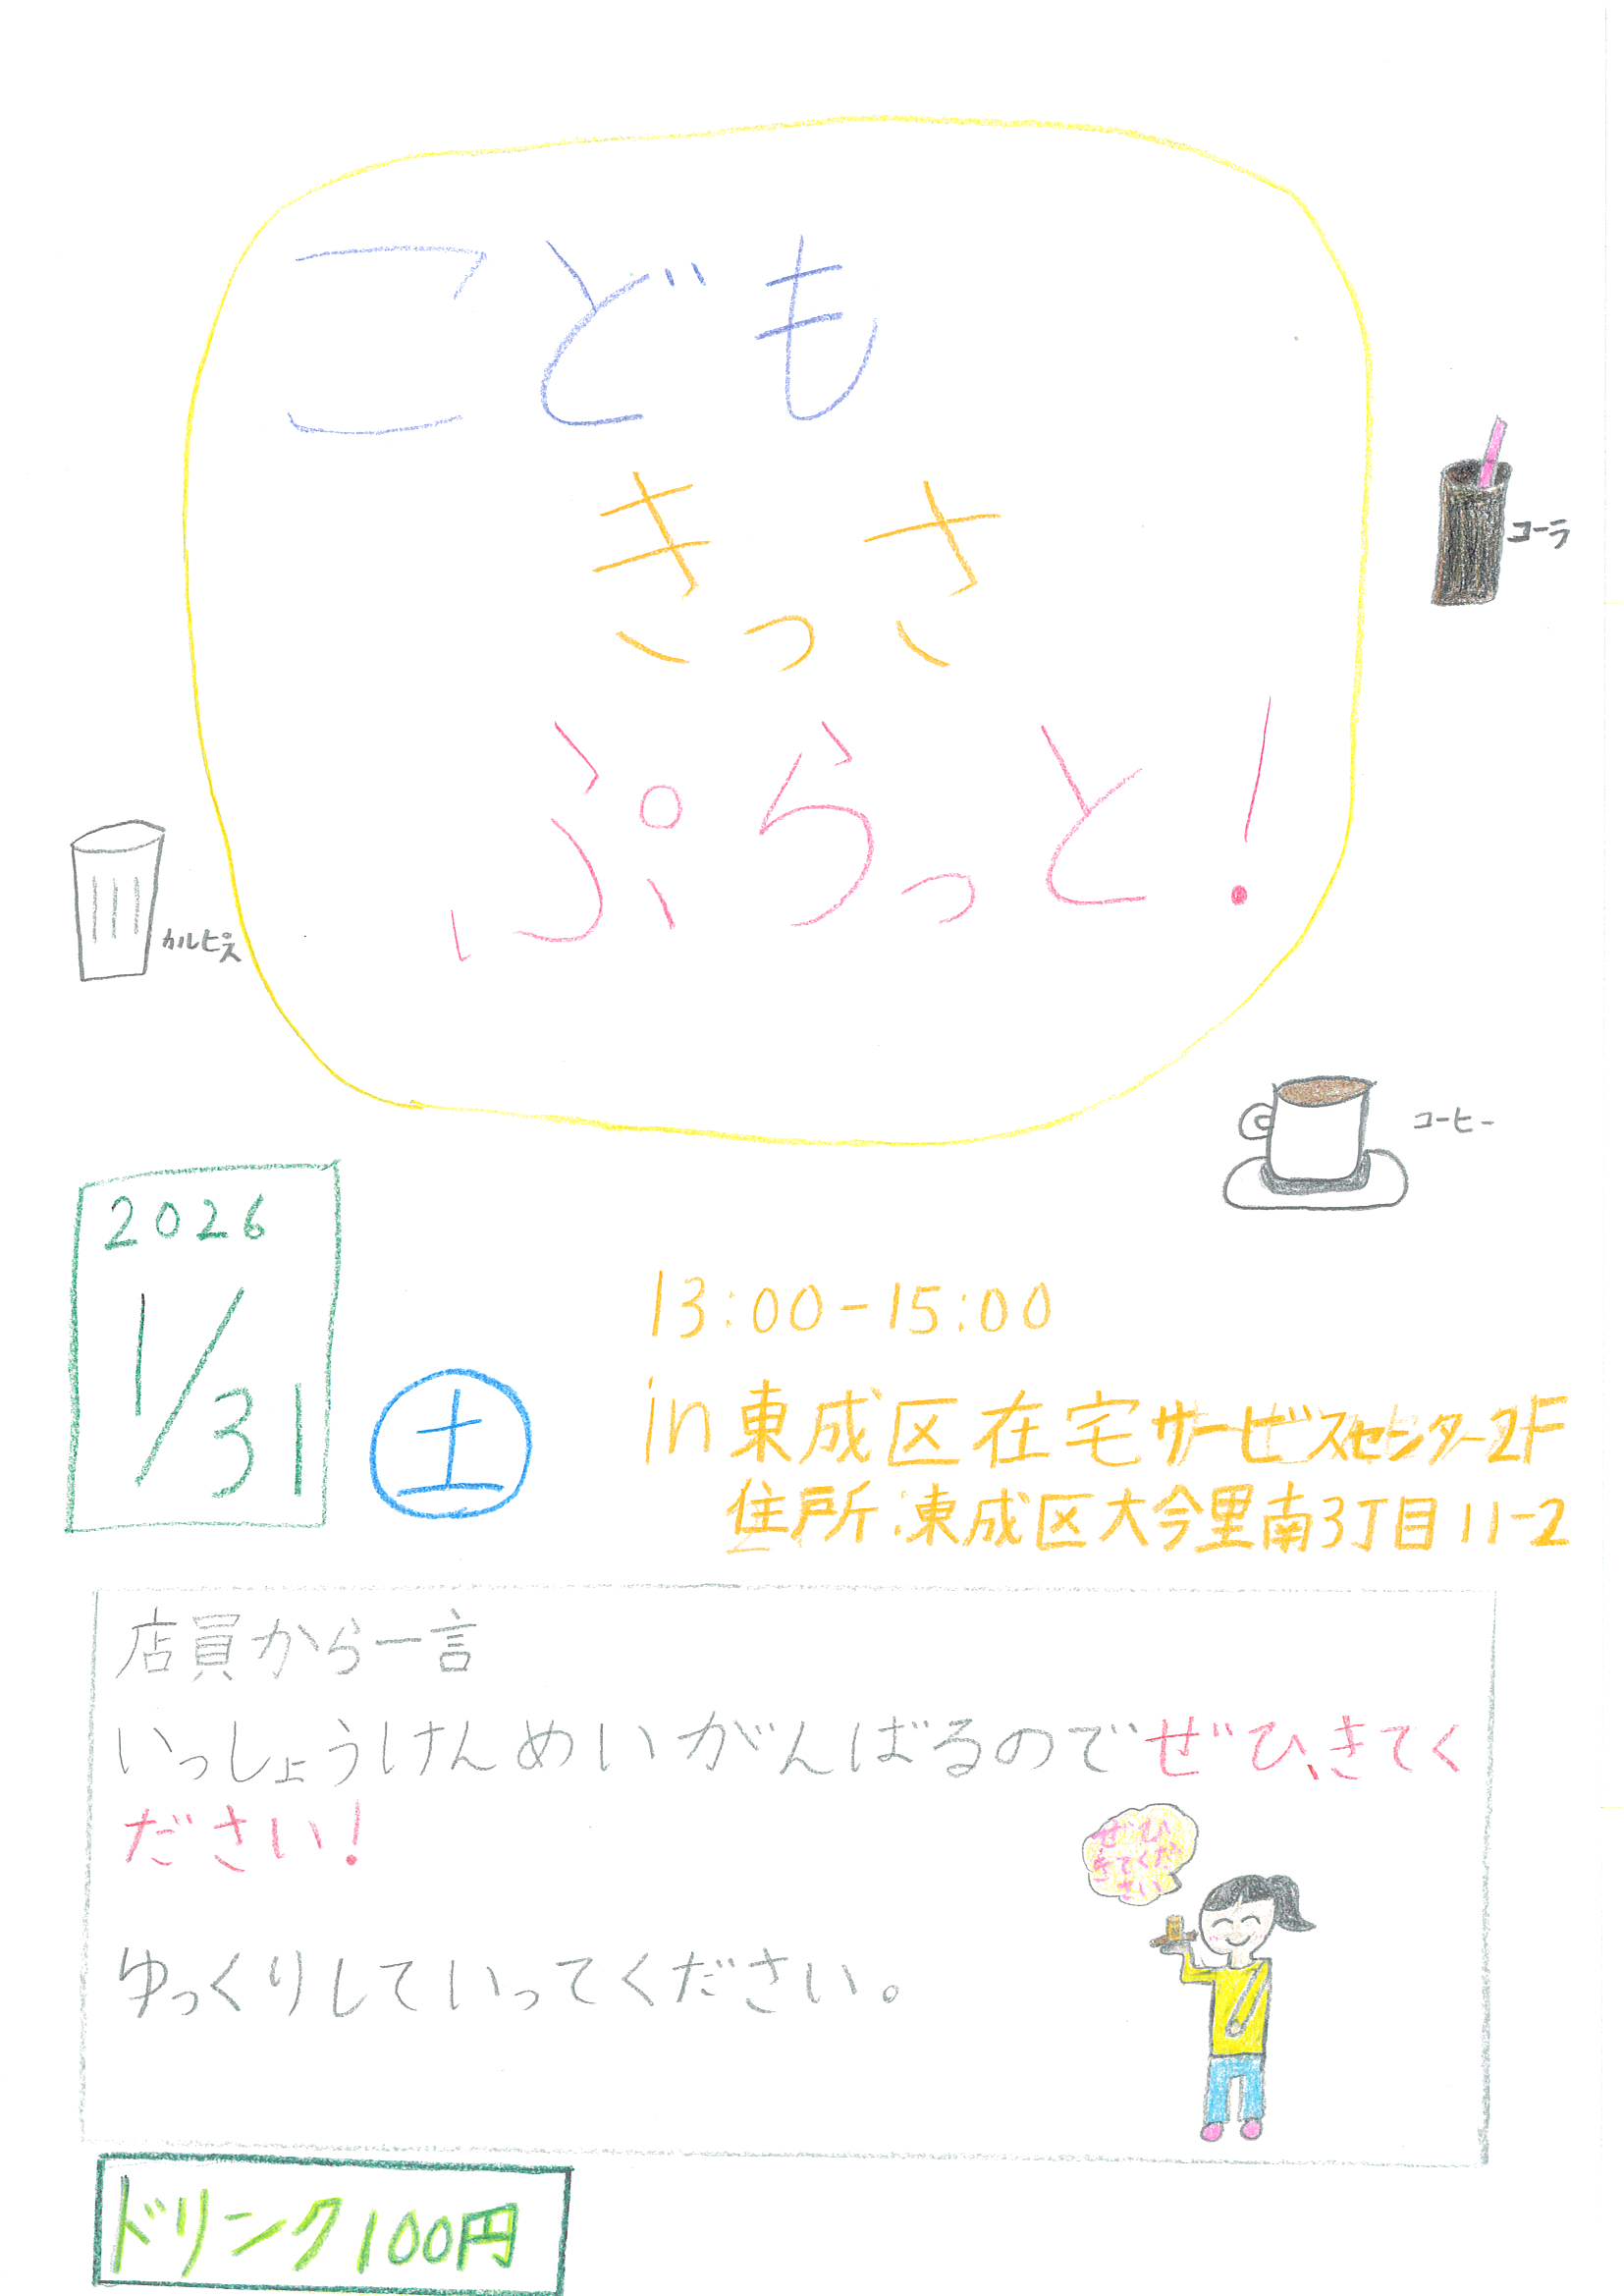 こども
きっさ
ぷらっと!
コーラ
カルピス
コーヒー
2026
1/31
土
13:00-15:00
in東成区在宅サービスセンター2F
住所:東成区大今里南3丁目11-2
店員から一言
いっしょうけんめいがんばるのでぜひ、きてく
ださい!
ぜひ
きてくだ
さい
ゆっくりしていってください。
ドリンク100円